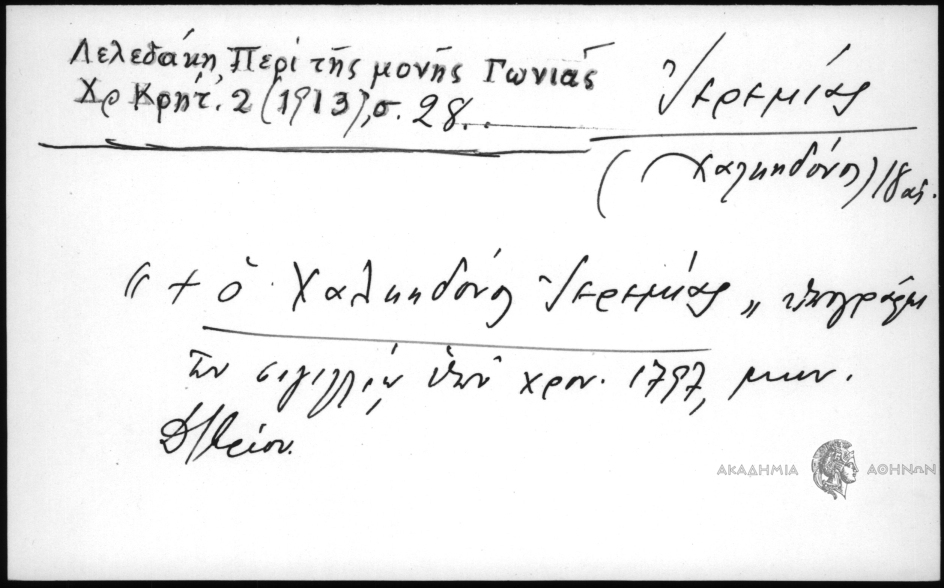 Λελεδάκη, Περί τῆς μονῆς Γωνιάς
Χρ Κρήτ. 2 (1913), σ. 28..
Ἱερεμίας
(Χαλκηδόνος) 18 αἰ.
"+ ὁ Χαλκηδόνος Ἱερεμίας" ὑπογράφει
χρον. 1797, μην.
ΑΚΑΔΗΜΙΑ ΑΘΗΝΩΝ